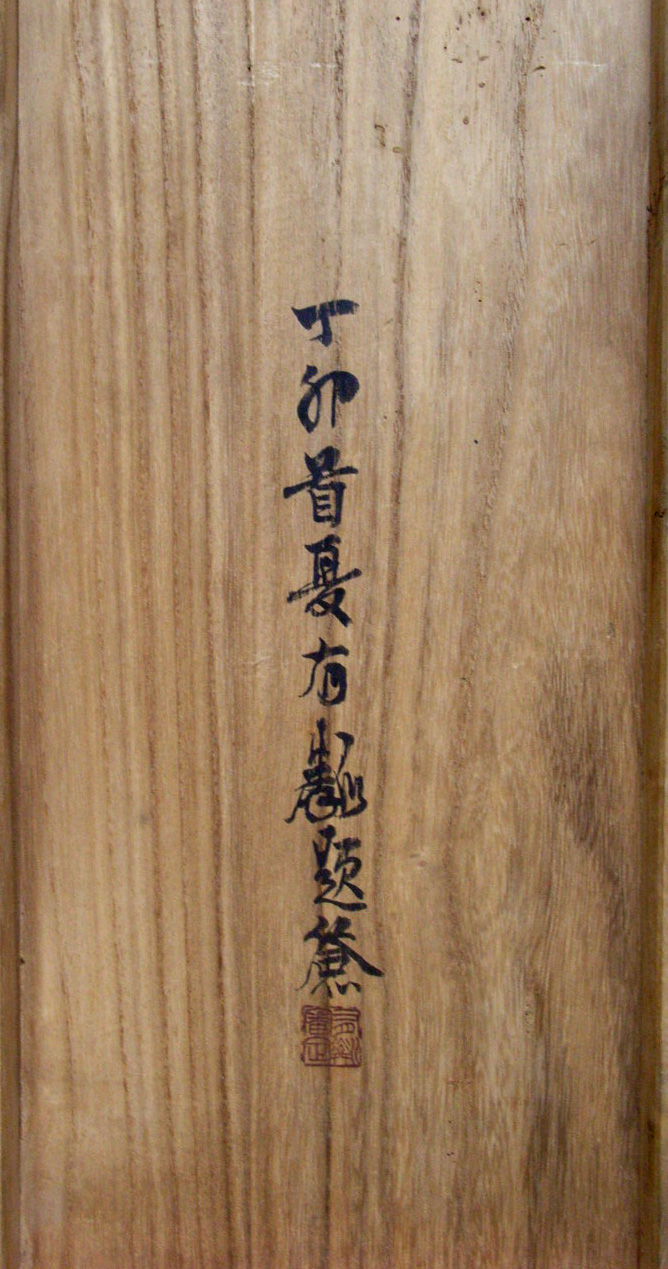 丁卯首夏有題簽